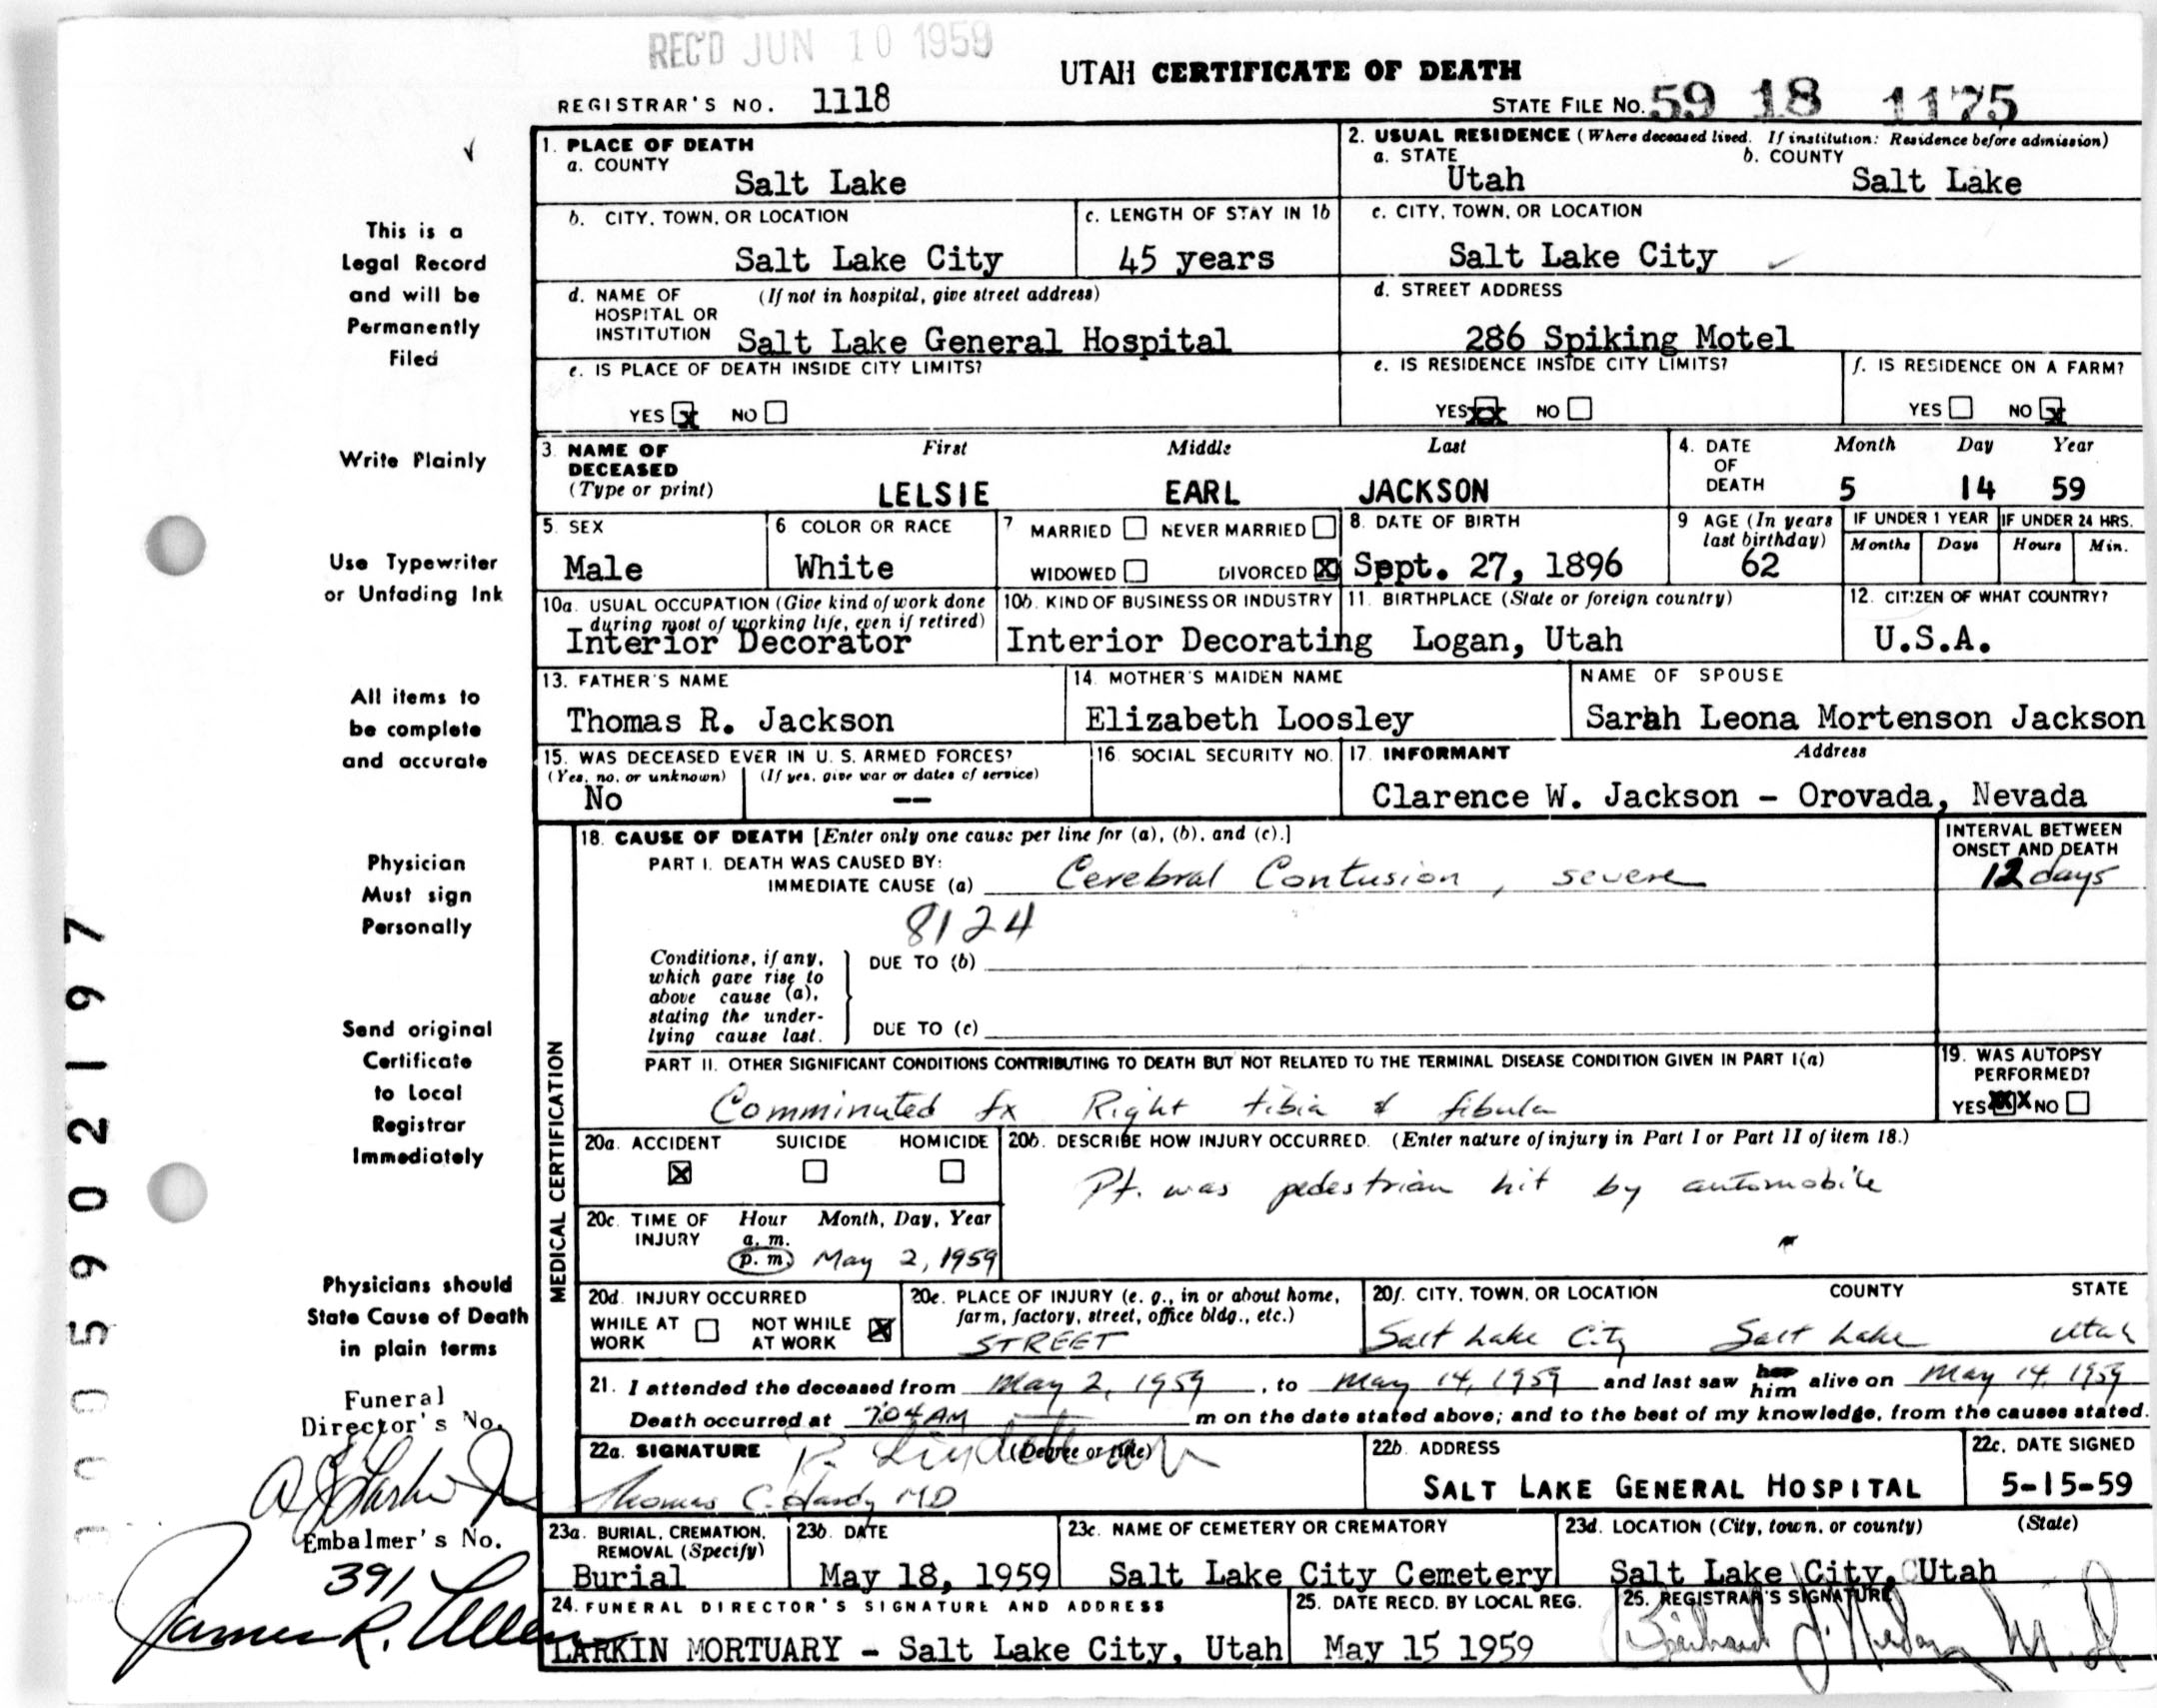 REC'D JUN 10 1959
UTAH CERTIFICATE OF DEATH
REGISTRAR'S NO. 1118
STATE FILE NO. 59 18 1175
This is a
Legal Record
and will be
Permanently
Filed
Write Plainly
Use Typewriter
or Unfading Ink
All items to
be complete
and accurate
Physician
Must sign
Personally
Send original
Certificate
to Local
Registrar
Immediately
Physicians should
State Cause of Death
in plain terms
Funeral
Director's No.
Embalmer's No.
391
James R. Allen
005902197
1. PLACE OF DEATH
a. COUNTY
Salt Lake
2. USUAL RESIDENCE (Where deceased lived. If institution: Residence before admission)
a. STATE b. COUNTY
Utah Salt Lake
b. CITY, TOWN, OR LOCATION
Salt Lake City
c. LENGTH OF STAY IN 1b
45 years
c. CITY, TOWN, OR LOCATION
Salt Lake City
d. NAME OF (If not in hospital, give street address)
HOSPITAL OR
INSTITUTION Salt Lake General Hospital
d. STREET ADDRESS
286 Spiking Motel
e. IS PLACE OF DEATH INSIDE CITY LIMITS?
YES X NO
e. IS RESIDENCE INSIDE CITY LIMITS?
YES XX NO
f. IS RESIDENCE ON A FARM?
YES NO X
3. NAME OF First Middle Last
DECEASED
(Type or print) LELSIE EARL JACKSON
4. DATE Month Day Year
OF
DEATH 5 14 59
5. SEX
Male
6 COLOR OR RACE
White
7 MARRIED NEVER MARRIED
WIDOWED DIVORCED X
8. DATE OF BIRTH
Sept. 27, 1896
9 AGE (In years
last birthday)
62
IF UNDER 1 YEAR IF UNDER 24 HRS.
Months Days Hours Min.
10a. USUAL OCCUPATION (Give kind of work done
during most of working life, even if retired)
Interior Decorator
10b. KIND OF BUSINESS OR INDUSTRY
Interior Decorating
11. BIRTHPLACE (State or foreign country)
Logan, Utah
12. CITIZEN OF WHAT COUNTRY?
U.S.A.
13. FATHER'S NAME
Thomas R. Jackson
14. MOTHER'S MAIDEN NAME
Elizabeth Loosley
NAME OF SPOUSE
Sarah Leona Mortenson Jackson
15. WAS DECEASED EVER IN U. S. ARMED FORCES?
(Yes, no, or unknown) (If yes, give war or dates of service)
No --
16. SOCIAL SECURITY NO.
17. INFORMANT Address
Clarence W. Jackson - Orovada, Nevada
MEDICAL CERTIFICATION
18. CAUSE OF DEATH [Enter only one cause per line for (a), (b), and (c).]
PART I. DEATH WAS CAUSED BY:
IMMEDIATE CAUSE (a) Cerebral Contusion, severe
INTERVAL BETWEEN
ONSET AND DEATH
12 days
8124
Conditions, if any,
which gave rise to
above cause (a),
stating the under-
lying cause last.
DUE TO (b)
DUE TO (c)
PART II. OTHER SIGNIFICANT CONDITIONS CONTRIBUTING TO DEATH BUT NOT RELATED TO THE TERMINAL DISEASE CONDITION GIVEN IN PART I(a)
Comminuted fx Right tibia & fibula
19. WAS AUTOPSY
PERFORMED?
YES XXX NO
20a. ACCIDENT SUICIDE HOMICIDE
X
20b. DESCRIBE HOW INJURY OCCURRED. (Enter nature of injury in Part I or Part II of item 18.)
Pt. was pedestrian hit by automobile
20c. TIME OF Hour Month, Day, Year
INJURY a. m.
p. m. May 2, 1959
20d. INJURY OCCURRED
WHILE AT WORK NOT WHILE AT WORK X
20e. PLACE OF INJURY (e. g., in or about home,
farm, factory, street, office bldg., etc.)
STREET
20f. CITY, TOWN, OR LOCATION COUNTY STATE
Salt Lake City Salt Lake Utah
21. I attended the deceased from May 2, 1959, to May 14, 1959 and last saw her him alive on May 14, 1959
Death occurred at 7:04 AM m on the date stated above; and to the best of my knowledge, from the causes stated.
22a. SIGNATURE (Degree or title)
Thomas C. Hardy MD
22b. ADDRESS
SALT LAKE GENERAL HOSPITAL
22c. DATE SIGNED
5-15-59
23a. BURIAL, CREMATION,
REMOVAL (Specify)
Burial
23b. DATE
May 18, 1959
23c. NAME OF CEMETERY OR CREMATORY
Salt Lake City Cemetery
23d. LOCATION (City, town, or county) (State)
Salt Lake City, Utah
24. FUNERAL DIRECTOR'S SIGNATURE AND ADDRESS
LARKIN MORTUARY - Salt Lake City, Utah
25. DATE RECD. BY LOCAL REG.
May 15 1959
25. REGISTRAR'S SIGNATURE